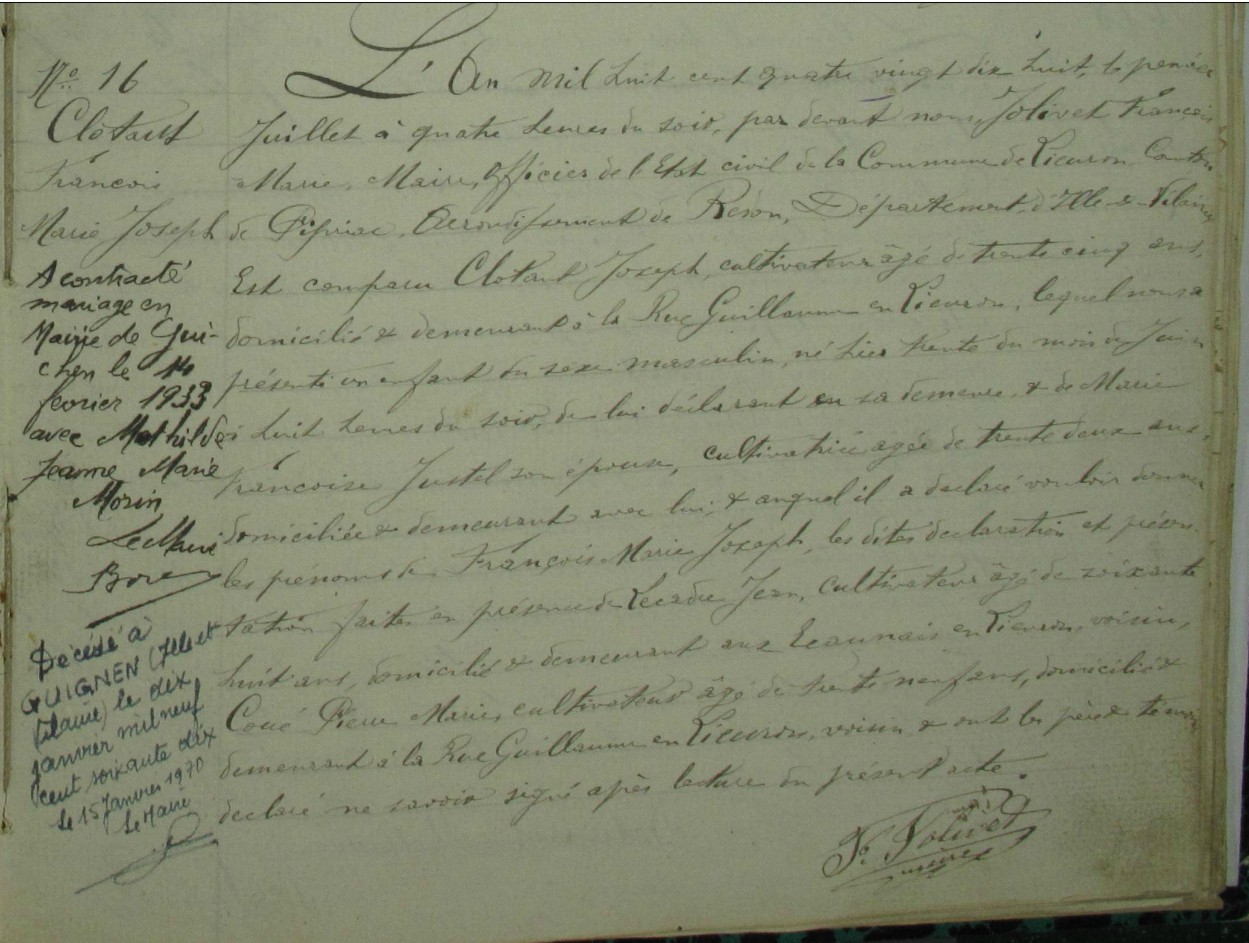 No. 16
Clotault
François
Marie Joseph
A contracté
mariage en
Mairie de Gui-
chen le 14
février 1933
avec Mathilde
Jeanne Marie
Morin
Le Maire
Décédé à
GUIGNEN (Ille et
Vilaine) le dix
janvier mil neuf
cent soixante dix
le 15 Janvier 1970
Le Maire
L'An mil huit cent quatre vingt dix huit, le premier
Juillet à quatre heures du soir, par devant nous, Jolivet François
Marie, Maire, Officier de l'Etat civil de la Commune de Lieuron, Canton
de Pipriac, Arrondissement de Redon, Département d'Ille-&-Vilaine
Est comparu Clotault Joseph, cultivateur âgé de trente cinq ans,
domicilié & demeurant à la Rue Guillaume en Lieuron, lequel nous a
présenté un enfant du sexe masculin, né hier trente du mois de Juin
à huit heures du soir, de lui déclarant en sa demeure, & de Marie
Françoise Justel son épouse, cultivatrice agée de trente deux ans,
domiciliée & demeurant avec lui, & auquel il a déclaré vouloir donner
les prénoms de François Marie Joseph, les dites déclaration et présen-
tation faites en présence de Jean, cultivateur âgé de soixante
huit ans, domicilié & demeurant aux en Lieuron, voisin,
Coué Pierre Marie, cultivateur âgé de trente neuf ans, domicilié &
demeurant à la Rue Guillaume en Lieuron, voisin & ont les père & témoins
declaré ne savoir signé après lecture du présent acte.
F. Jolivet
maire